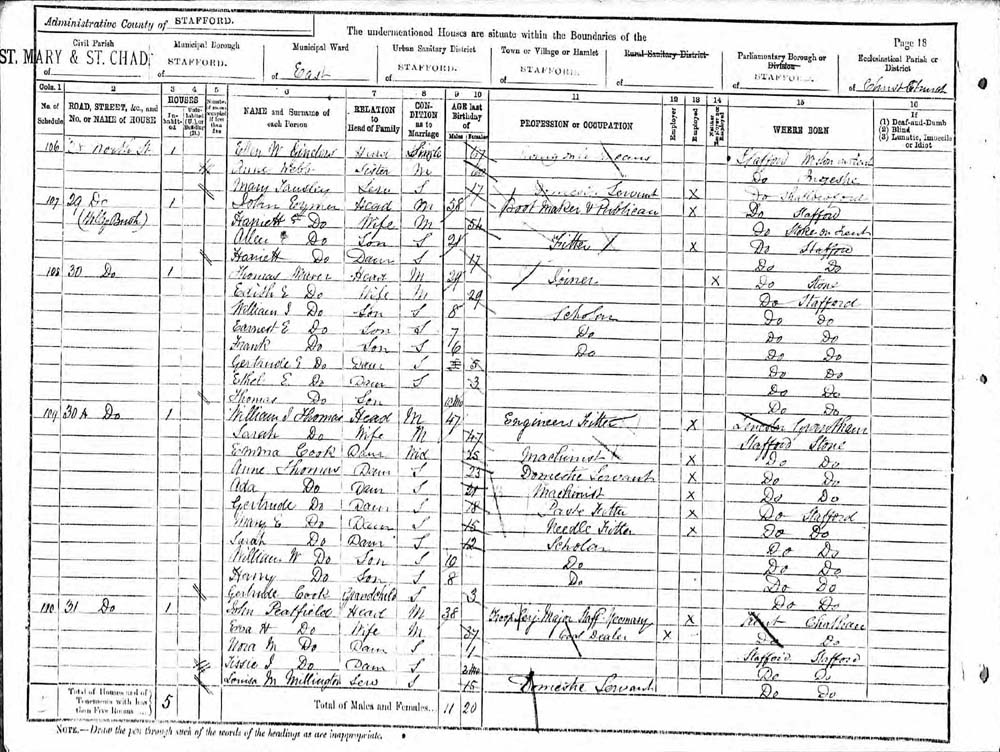 Administrative County of STAFFORD.
The undermentioned Houses are situate within the Boundaries of the
Page 18
Civil Parish Municipal Borough Municipal Ward Urban Sanitary District Town or Village or Hamlet Rural Sanitary District Parliamentary Borough or Division Ecclesiastical Parish or District
ST. MARY & ST. CHAD STAFFORD. of East STAFFORD. of STAFFORD. of STAFFORD. of Christ Church
Cols. 1 2 3 4 5 6 7 8 9 10 11 12 13 14 15 16
No. of Schedule ROAD, STREET, &c., and No. or NAME of HOUSE HOUSES Inhabited NAME and Surname of each Person RELATION to Head of Family CONDITION as to Marriage AGE last Birthday of Males Females PROFESSION or OCCUPATION Employer Employed Neither Employer nor Employed WHERE BORN If (1) Deaf-and-Dumb (2) Blind (3) Lunatic, Imbecile or Idiot
106 North St 1 Ellen W Head Single 67 Living on Means Stafford
Anne Webb Sister M Do
Mary Serv S 17 Domestic Servant X Do
107 29 Do 1 John Head M 58 Boot Maker & Publican X Do Stafford
Harriett Do Wife M 54 Do Stoke on Trent
Do Son S 21 Fitter X Do Stafford
Harriett Do Daur S 17 Do Do
108 30 Do 1 Thomas Head M 29 Joiner X Do Stone
Edith E Do Wife M 29 Do Stafford
William J Do Son S 8 Scholar Do Do
Earnest E Do Son S 7 Do Do Do
Frank Do Son S 6 Do Do Do
Gertrude E Do Daur S 5 Do Do
Ethel E Do Daur S 3 Do Do
Thomas Do Son Do Do
109 30A Do 1 William J Thomas Head M 47 Engineers Fitter X Lincoln Grantham
Sarah Do Wife M 47 Stafford Stone
Emma Cook Daur Wid 25 Machinist X Do Do
Anne Thomas Daur S 23 Domestic Servant X Do Do
Ada Do Daur S 21 Machinist X Do Do
Gertrude Do Daur S 18 Fitter X Do Stafford
Mary E Do Daur S 15 Needle Fitter X Do Do
Sarah Do Daur S 12 Scholar Do Do
William W Do Son S 10 Do Do Do
Harry Do Son S 8 Do Do Do
Gertrude Cook Grandchild S 3 Do Do
110 31 Do 1 John Peatfield Head M 38 Troop Serj. Major Staff Yeomanry X Kent Chatham
Do Wife M 37 Dealer X Do Do
Nora M Do Daur S 1 Stafford Stafford
Jessie J Do Daur S Do Do
Louisa M Millington Serv S 15 Domestic Servant Do Do
Total of Houses and of Tenements with less than Five Rooms 5 Total of Males and Females.. 11 20
NOTE.—Draw the pen through such of the words of the headings as are inappropriate.